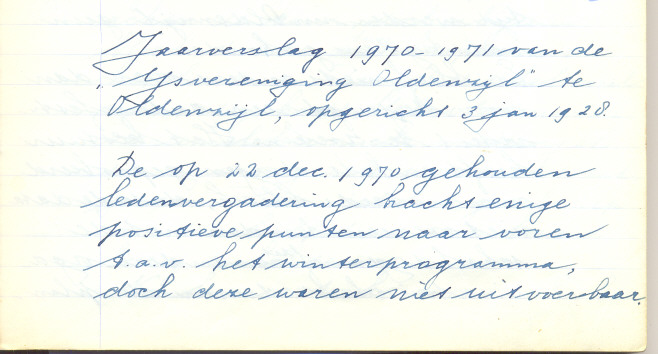 Jaarverslag 1970-1971 van de
"Ysvereniging Oldenzijl" te
Oldenzijl, opgericht 3 jan 1928.
De op 22 dec. 1970 gehouden
ledenvergadering bracht enige
positieve punten naar voren
t.a.v. het winterprogramma,
doch deze waren niet uitvoerbaar.